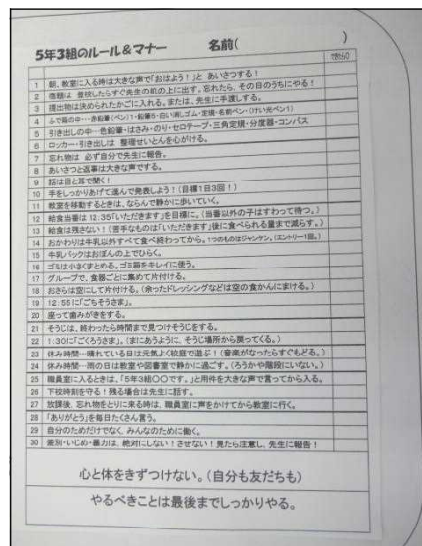 5年3組のルール&マナー 名前( )
1 朝、教室に入る時は大きな声で「おはよう！」と あいさつする！
2 宿題は 登校したらすぐ先生の机の上に出す。忘れたら、その日のうちにやる！
3 提出物は決められたかごに入れる。または、先生に手渡しする。
4 ふで箱の中…赤鉛筆(ペン)1・鉛筆5・白い消しゴム・定規・名前ペン・(けい光ペン1)
5 引き出しの中…色鉛筆・はさみ・のり・セロテープ・三角定規・分度器・コンパス
6 ロッカー・引き出しは 整理せいとんを心がける。
7 忘れ物は 必ず自分で先生に報告。
8 あいさつと返事は大きな声でする。
9 話は目と耳で聞く！
10 手をしっかりあげて進んで発表しよう！(目標1日3回！)
11 教室を移動するときは、ならんで静かに歩いていく。
12 給食当番は 12:35「いただきます」を目標に。(当番以外の子はすわって待つ。)
13 給食は残さない！(苦手なものは「いただきます」後に食べられる量まで減らす。)
14 おかわりは牛乳以外すべて食べ終わってから。1つのものはジャンケン。(エントリー1回。)
15 牛乳パックはおぼんの上でひらく。
16 ゴミは小さくまとめる。ゴミ箱をキレイに使う。
17 グループで、食器ごとに集めて片付ける。
18 おさらは空にして片付ける。(余ったドレッシングなどは空の食かんにあける。)
19 12:55に「ごちそうさま」。
20 座って歯みがきをする。
21 そうじは、終わったら時間まで見つけそうじをする。
22 1:30に「ごくろうさま」。(まにあうように、そうじ場所から戻ってくる。)
23 休み時間…晴れている日は元気よく校庭で遊ぶ！(音楽がなったらすぐもどる。)
24 休み時間…雨の日は教室や図書室で静かに過ごす。(ろうかや階段にいない。)
25 職員室に入るときは、「5年3組○○です。」と用件を大きな声で言ってから入る。
26 下校時刻を守る！残る場合は先生に話す。
27 放課後、忘れ物をとりに来る時は、職員室に声をかけてから教室に行く。
28 「ありがとう」を毎日たくさん言う。
29 自分のためだけでなく、みんなのために働く。
30 差別・いじめ・暴力は、絶対にしない！させない！見たら注意し、先生に報告！
心と体をきずつけない。(自分も友だちも)
やるべきことは最後までしっかりやる。